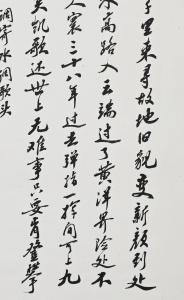 千里来寻故地旧貌變新颜到处
水高路入云端过了黄洋界险处不
人寰三十八年过去弹指一挥间可上九
笑凯歌还世上无难事只要肯登攀
调寄水调歌头